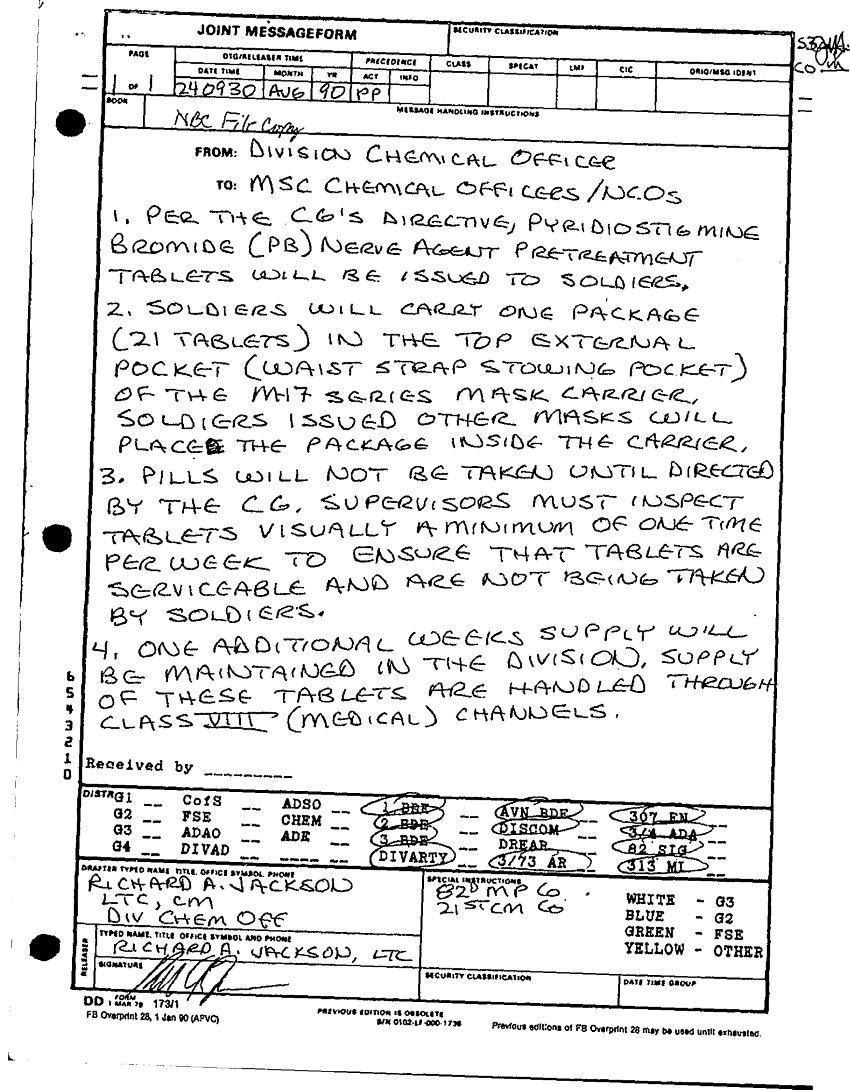 JOINT MESSAGEFORM
SECURITY CLASSIFICATION
PAGE
DTG/RELEASER TIME
PRECEDENCE
CLASS
SPECAT
LMF
CIC
ORIG/MSG IDENT
DATE TIME
MONTH
YR
ACT
INFO
1 OF 1
240930
AUG
90
PP
CO
BOOK
MESSAGE HANDLING INSTRUCTIONS
NBC File Copy
FROM: DIVISION CHEMICAL OFFICER
TO: MSC CHEMICAL OFFICERS/NCOS
1. PER THE CG'S DIRECTIVE, PYRIDIOSTIGMINE
BROMIDE (PB) NERVE AGENT PRETREATMENT
TABLETS WILL BE ISSUED TO SOLDIERS.
2. SOLDIERS WILL CARRY ONE PACKAGE
(21 TABLETS) IN THE TOP EXTERNAL
POCKET (WAIST STRAP STOWING POCKET)
OF THE M17 SERIES MASK CARRIER.
SOLDIERS ISSUED OTHER MASKS WILL
PLACE THE PACKAGE INSIDE THE CARRIER.
3. PILLS WILL NOT BE TAKEN UNTIL DIRECTED
BY THE CG. SUPERVISORS MUST INSPECT
TABLETS VISUALLY A MINIMUM OF ONE TIME
PER WEEK TO ENSURE THAT TABLETS ARE
SERVICEABLE AND ARE NOT BEING TAKEN
BY SOLDIERS.
4. ONE ADDITIONAL WEEKS SUPPLY WILL
BE MAINTAINED IN THE DIVISION. SUPPLY
OF THESE TABLETS ARE HANDLED THROUGH
CLASS VIII (MEDICAL) CHANNELS.
6
5
4
3
2
1
0
Received by _________
DISTR G1 __ CofS __ ADSO __ 1 BDE __ AVN BDE __ 307 EN
G2 __ FSE __ CHEM __ 2 BDE __ DISCOM __ 3/4 ADA
G3 __ ADAO __ ADE __ 3 BDE __ DREAR __ 82 SIG
G4 __ DIVAD __ _____ __ DIVARTY __ 3/73 AR __ 313 MI
DRAFTER TYPED NAME TITLE, OFFICE SYMBOL, PHONE
RICHARD A. JACKSON
LTC, CM
DIV CHEM OFF
SPECIAL INSTRUCTIONS
82D MP Co
21ST CM Co
WHITE - G3
BLUE - G2
GREEN - FSE
YELLOW - OTHER
RELEASER
TYPED NAME, TITLE OFFICE SYMBOL AND PHONE
RICHARD A. JACKSON, LTC
SIGNATURE
SECURITY CLASSIFICATION
DATE TIME GROUP
DD FORM 1 MAR 79 173/1
FB Overprint 28, 1 Jan 90 (APVC)
PREVIOUS EDITION IS OBSOLETE
S/N 0102-LF-000-1736
Previous editions of FB Overprint 28 may be used until exhausted.